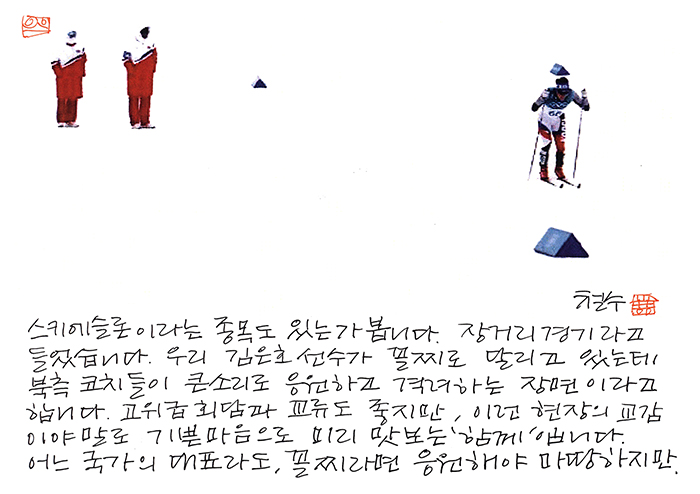 철수
스키에슬론이라는 종목도 있는가 봅니다. 장거리경기라고
들었습니다. 우리 김은호 선수가 꼴찌로 달리고 있는데
북측 코치들이 큰소리로 응원하고 격려하는 장면이라고
합니다. 고위급회담과 교류도 좋지만, 이런 현장의 교감
이야말로 기쁜마음으로 미리 맛보는 '함께'입니다.
어느 국가의 대표라도, 꼴찌라면 응원해야 마땅하지만.